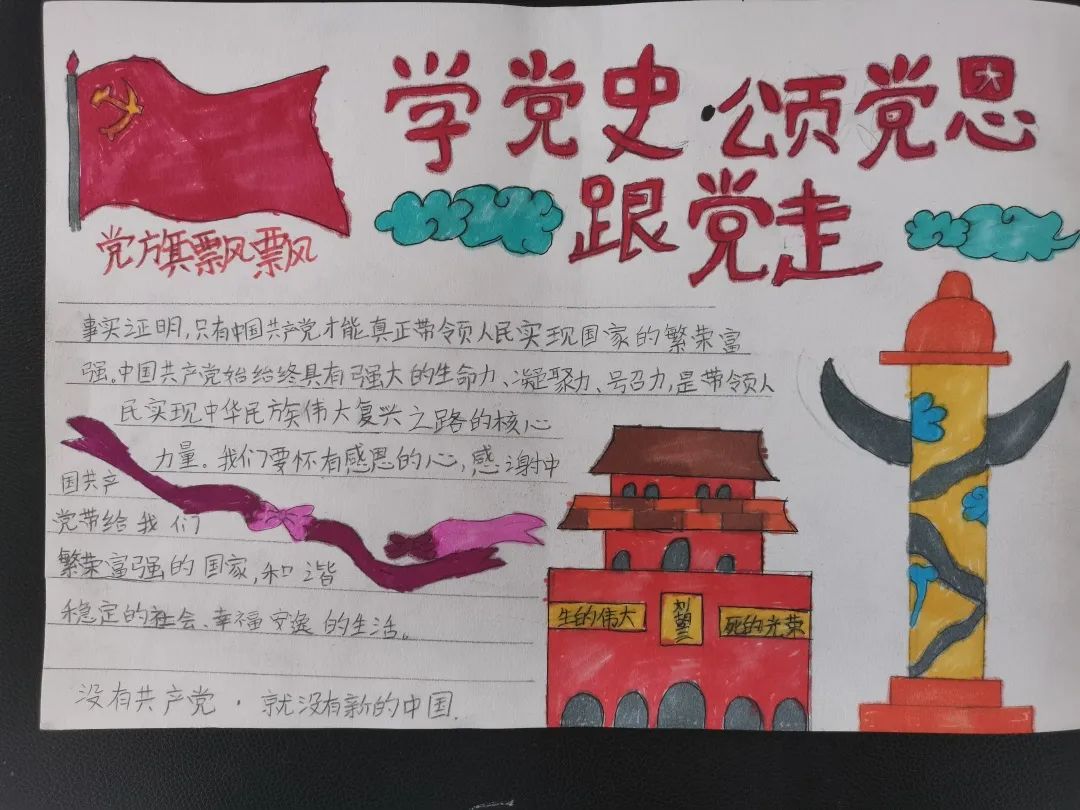 学党史·颂党恩
跟党走
党旗飘飘
事实证明,只有中国共产党才能真正带领人民实现国家的繁荣富
强。中国共产党始给终具有强大的生命力、凝聚力、号召力,是带领人
民实现中华民族伟大复兴之路的核心
力量。我们要怀有感恩的心,感谢中
国共产
党带给我们
繁荣富强的国家,和谐
稳定的社会、幸福安逸的生活。
没有共产党·就没有新的中国.
生的伟大
死的光荣